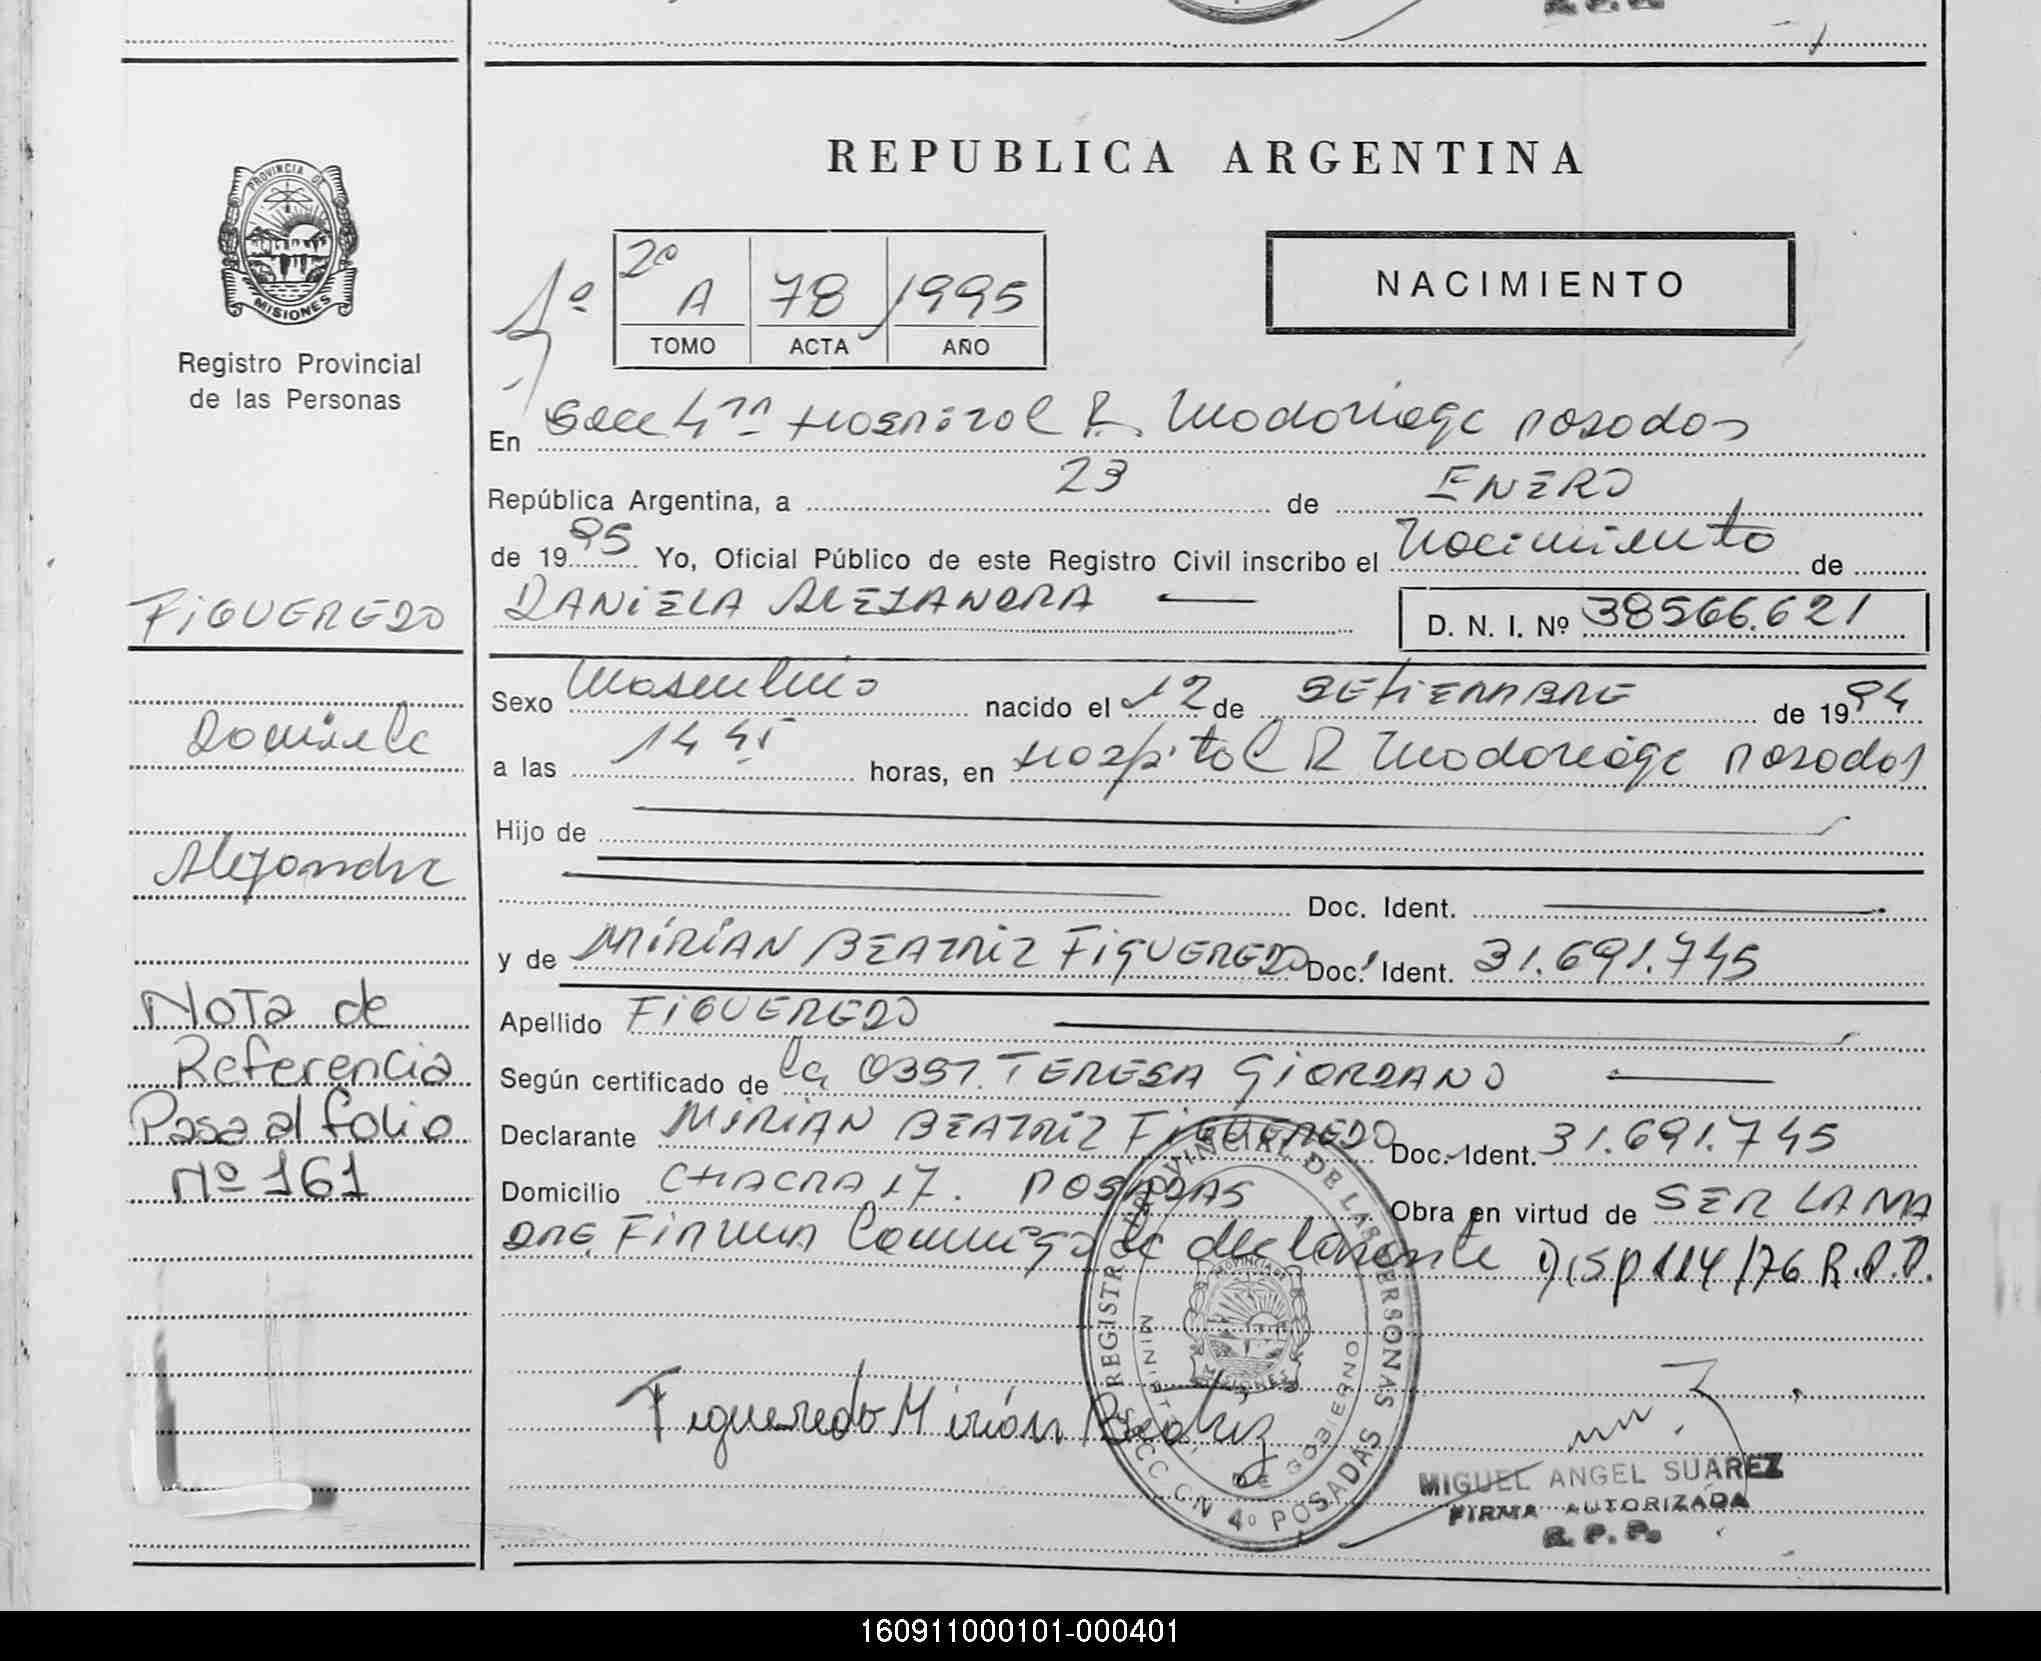 PROVINCIA DE
MISIONES
Registro Provincial
de las Personas
REPUBLICA ARGENTINA
1º
2º A 78 1995
TOMO ACTA AÑO
NACIMIENTO
En Secc 4ta Hospital R. Madariaga Posadas
República Argentina, a 23 de ENERO
de 1995 Yo, Oficial Público de este Registro Civil inscribo el Nacimiento de
DANIELA ALEJANDRA — D. N. I. Nº 38566.621
Sexo Masculino nacido el 12 de SETIEMBRE de 1994
a las 14 45 horas, en Hospital R Madariaga Posadas
Hijo de
Doc. Ident.
y de MIRIAN BEATRIZ FIGUEREDO Doc. Ident. 31.691.745
Apellido FIGUEREDO
Según certificado de la OBST. TERESA GIORDANO —
Declarante MIRIAN BEATRIZ FIGUEREDO Doc. Ident. 31.691.745
Domicilio CHACRA 17. POSADAS Obra en virtud de SER LA MA
DRE. FIRMA Conmigo la declarante DISP 114/76 R.P.P.
Figueredo Mirián Beatriz
REGISTRO PROVINCIAL DE LAS PERSONAS
SECCCN 4º POSADAS
MINISTERIO DE GOBIERNO
PROVINCIA DE
MISIONES
MIGUEL ANGEL SUAREZ
FIRMA AUTORIZADA
R. P. P.
FIGUEREDO
Daniela
Alejandra
NOTA de
Referencia
Pasa al folio
Nº 161
160911000101-000401